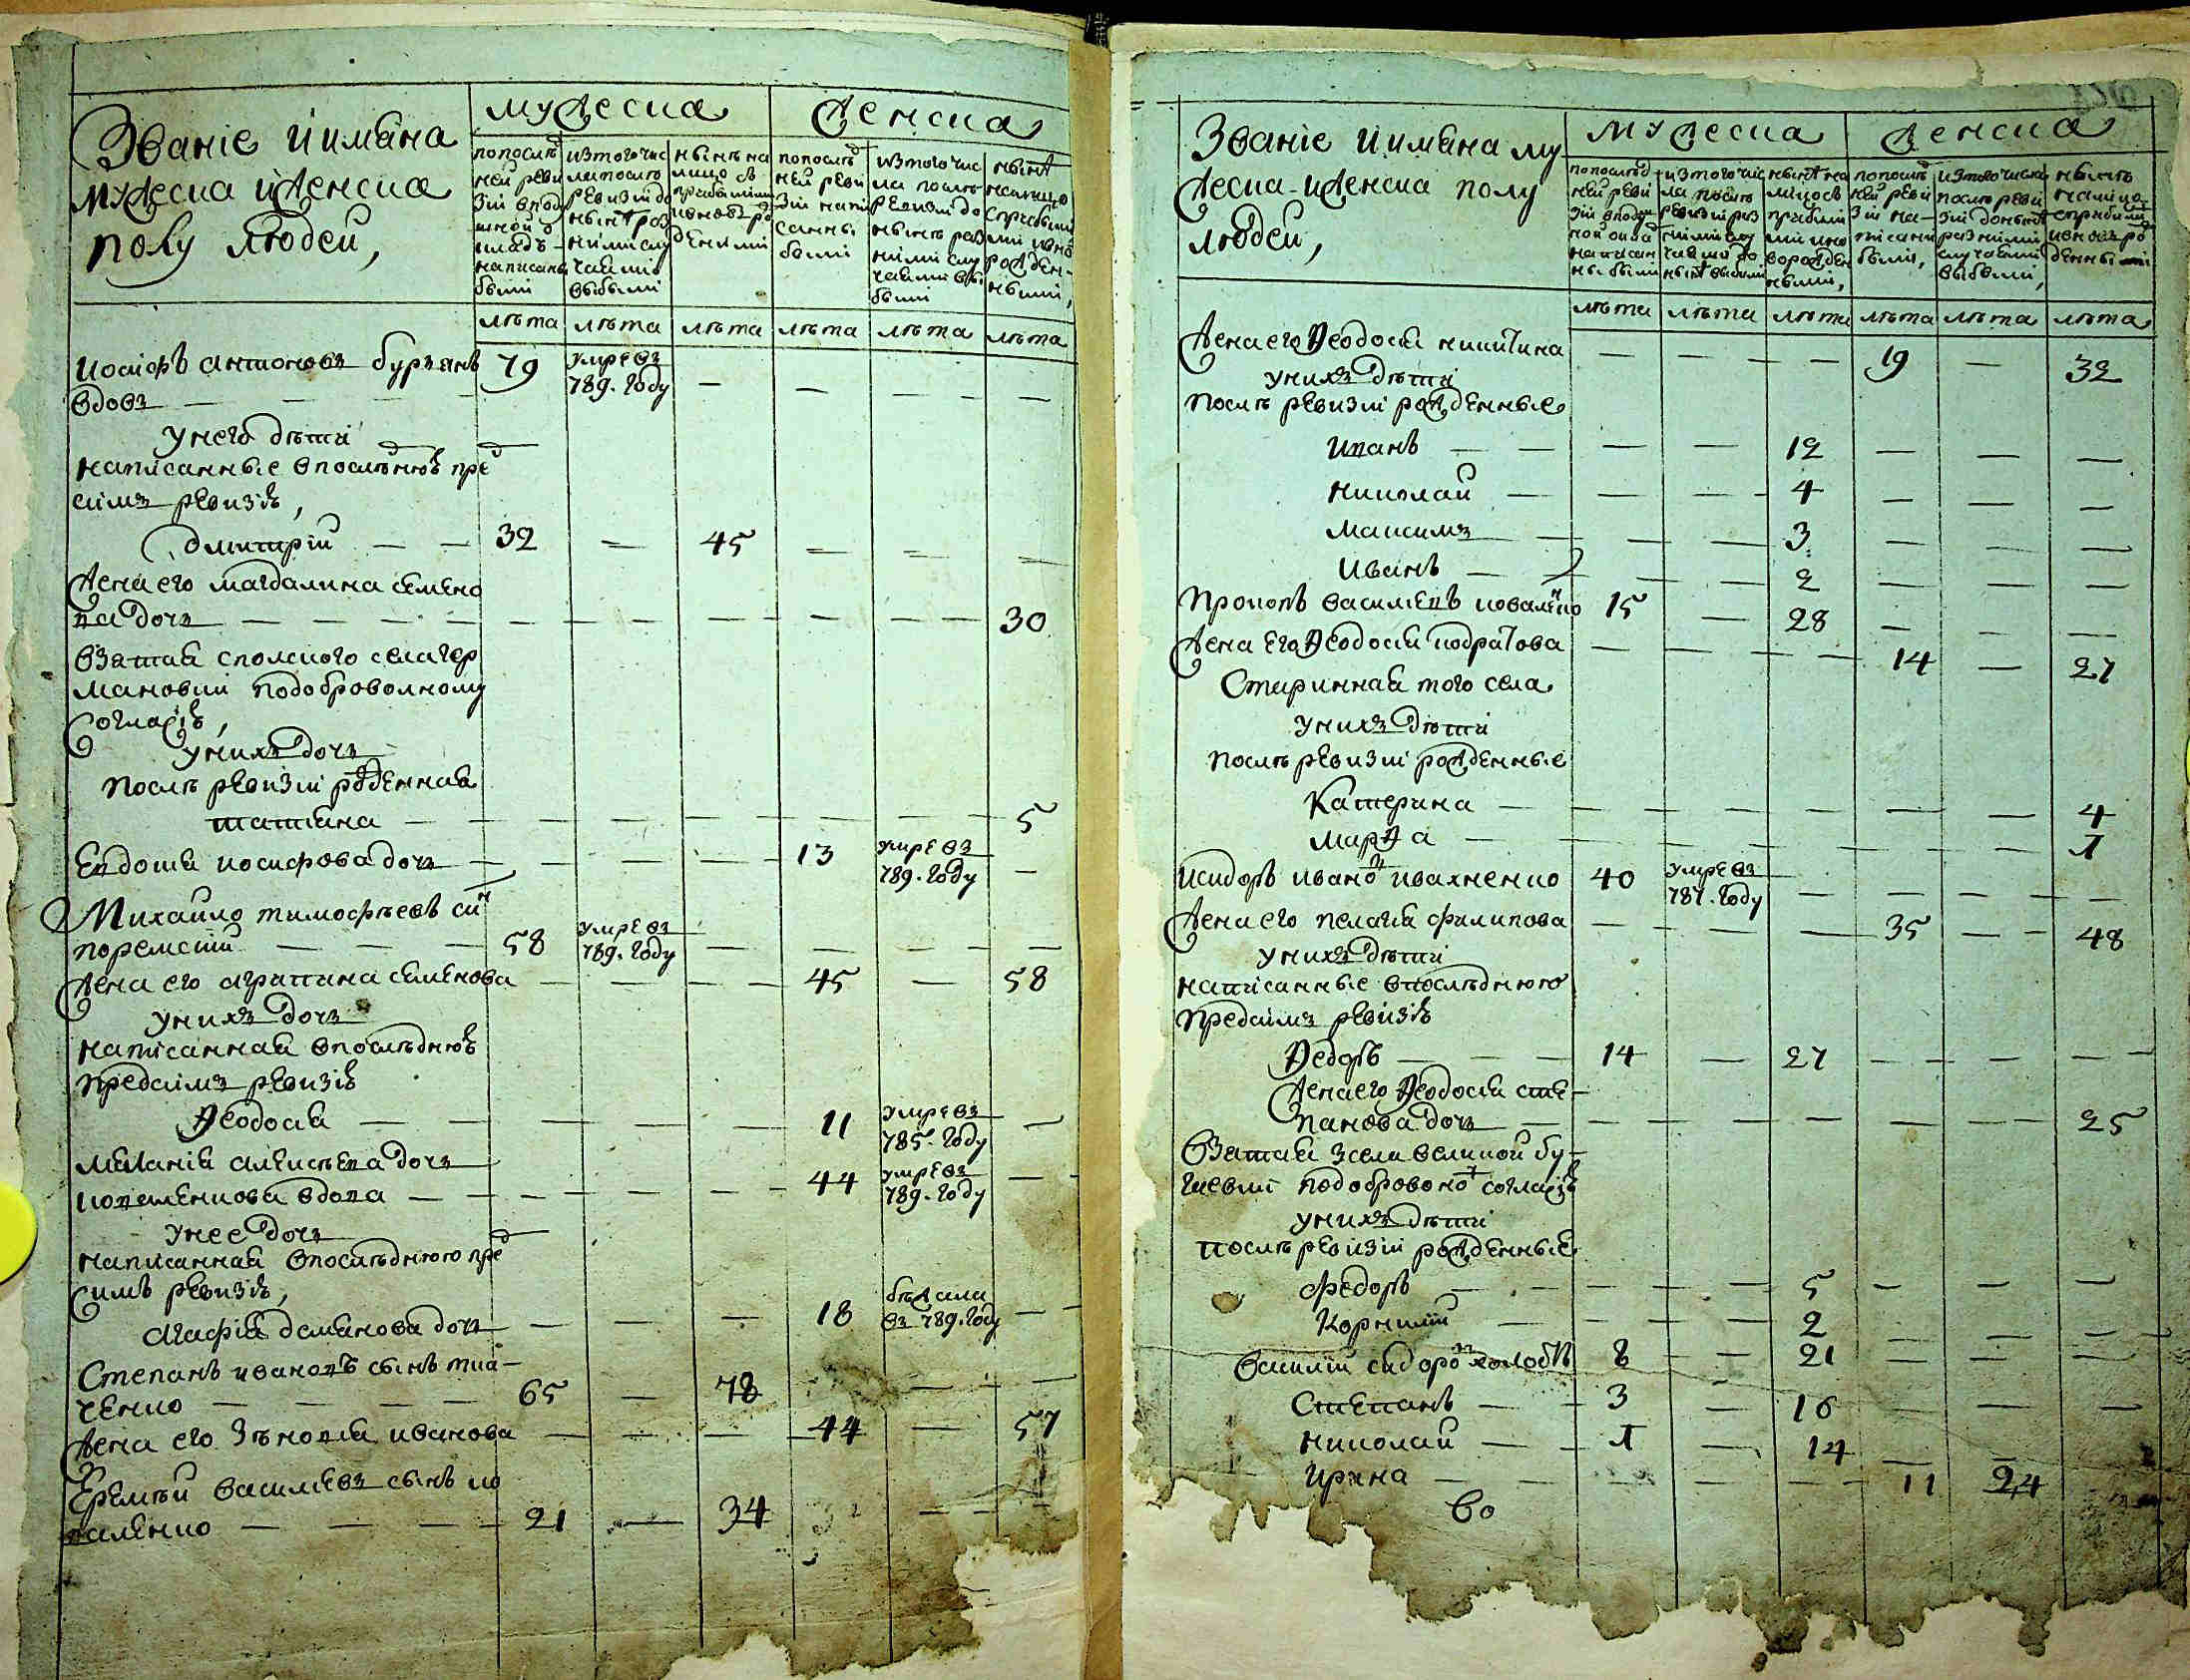 Званіе и имѣна
мужеска и женска
полу людей,
мужеска
женска
по послѣд
ней реви
зіи в под
написаны
были
из того чис
ла по послѣ
ревизіи до
нынѣ раз
ними слу
чаями
выбыли
нынѣ на
лицо съ
по послѣд
ней реви
зіи напи
санны
были
из того чис
ла послѣ
ревизіи до
нынѣ раз
ними слу
чаями вы
были
нынѣ
налицо
с прибыли
ми и вно
рожден
ными,
лѣта лѣта лѣта лѣта лѣта лѣта
Иосифъ антоновъ бурханъ 79 умре въ
вдовъ — 789. году — — — — —
у него дѣти
написанные в послѣднюѣ пред
симъ ревизіѣ,
Дмитрій — — 32 — 45 — — —
Жена его магдалина семено
ва дочъ — — — — — — — 30
взятая с полского села гер
мановки по доброволному
согласіѣ,
у нихъ дочъ
послѣ ревизіи рожденная
татіяна — — — — — — 5
Евдокия иосифова дочъ — — — — 13 умре въ
789. году —
Михайло тимофѣевъ сын
поремский — — — 58 умре въ
789. году — — — —
Жена его агрипина семенова — — — — 45 — 58
у нихъ дочъ
написанная в послѣднюѣ
пред симъ ревизіѣ
Ѳеодосия — — — — — 11 умре въ
785. году —
Меланія алексѣева дочъ
вдова — — — — — 44 умре въ
789. году —
у нее дочъ
написанная в послѣднюю пред
симъ ревизіѣ,
агафія демянова дочъ — — — 18 бѣжала
въ 789. году —
Степанъ ивановъ сынъ тка
ченко — — — 65 — 78 — — —
Жена его Зѣновия иванова — — — 44 — 57
Еремѣй василиевъ сынъ ко
валенко — — — 21 — 34 — —
Званіе и имѣна му
жеска и женска полу
людей,
мужеска
женска
по послѣд
ней реви
написан
ны были
из того чис
ла послѣ
ревизіи раз
ними слу
чаями до
нынѣ выбыли
нынѣ на
лицо съ
прибыли
ми и но
ворожден
ными,
по послѣд
ней реви
зіи на
писаны
были,
из того числа
послѣ реви
зіи до нынѣ
разними
случаями
выбыли,
нынѣ
налицо
с прибыли
ми и вновъ ро
жденны ми
лѣта лѣта лѣта лѣта лѣта лѣта
Жена его Ѳеодосия никитина — — — — 19 — 32
у нихъ дѣти
послѣ ревизіи рожденные
Иванъ — — — — 12 — — —
Николай — — — 4 — — —
Максимъ — — — 3 — — —
Иванъ — — — 2 — — —
Прокопъ василиевъ коваленко 15 — 28 — — —
Жена его Ѳеодосия кодратова — — — 14 — 27
Старинная того села
у нихъ дѣти
послѣ ревизіи рожденные
Катерина — — — — — — 4
Марѳа — — — — — — 1
Исидоръ ивано в ивахненко 40 умре въ
787. году — — — —
Жена его пелагія филипова — — — 35 — — 48
у нихъ дѣти
написанные в послѣднюю
пред симъ ревизіѣ
Ѳедоръ — — — 14 — 27 — — —
Жена его Ѳеодосия сте
панова дочъ — — — — — — 25
Взятая з села великой бу
по доброволно согласіѣ
у нихъ дѣти
послѣ ревизіи рожденные
Федоръ — — — 5 — — —
Корнилій — — — 2 — — —
Василий сидоро в 8 — 21 — — —
Степанъ — — 3 — 16 — — —
Николай — — 1 — 14 — —
Ирина — — — — — 11 24
Во